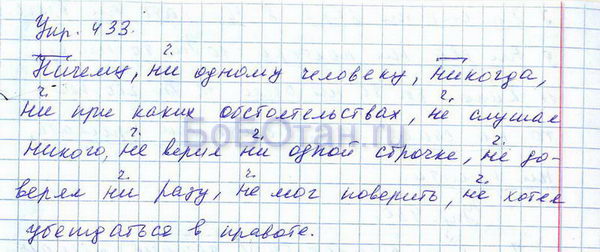 Упр. 433.
Ничему, ни одному человеку, никогда,
ни при каких обстоятельствах, не слушал
никого, не верил ни одной строчке, не до-
верял ни разу, не мог поверить, не хотел
убеждаться в правоте.
БоБОтан.ru